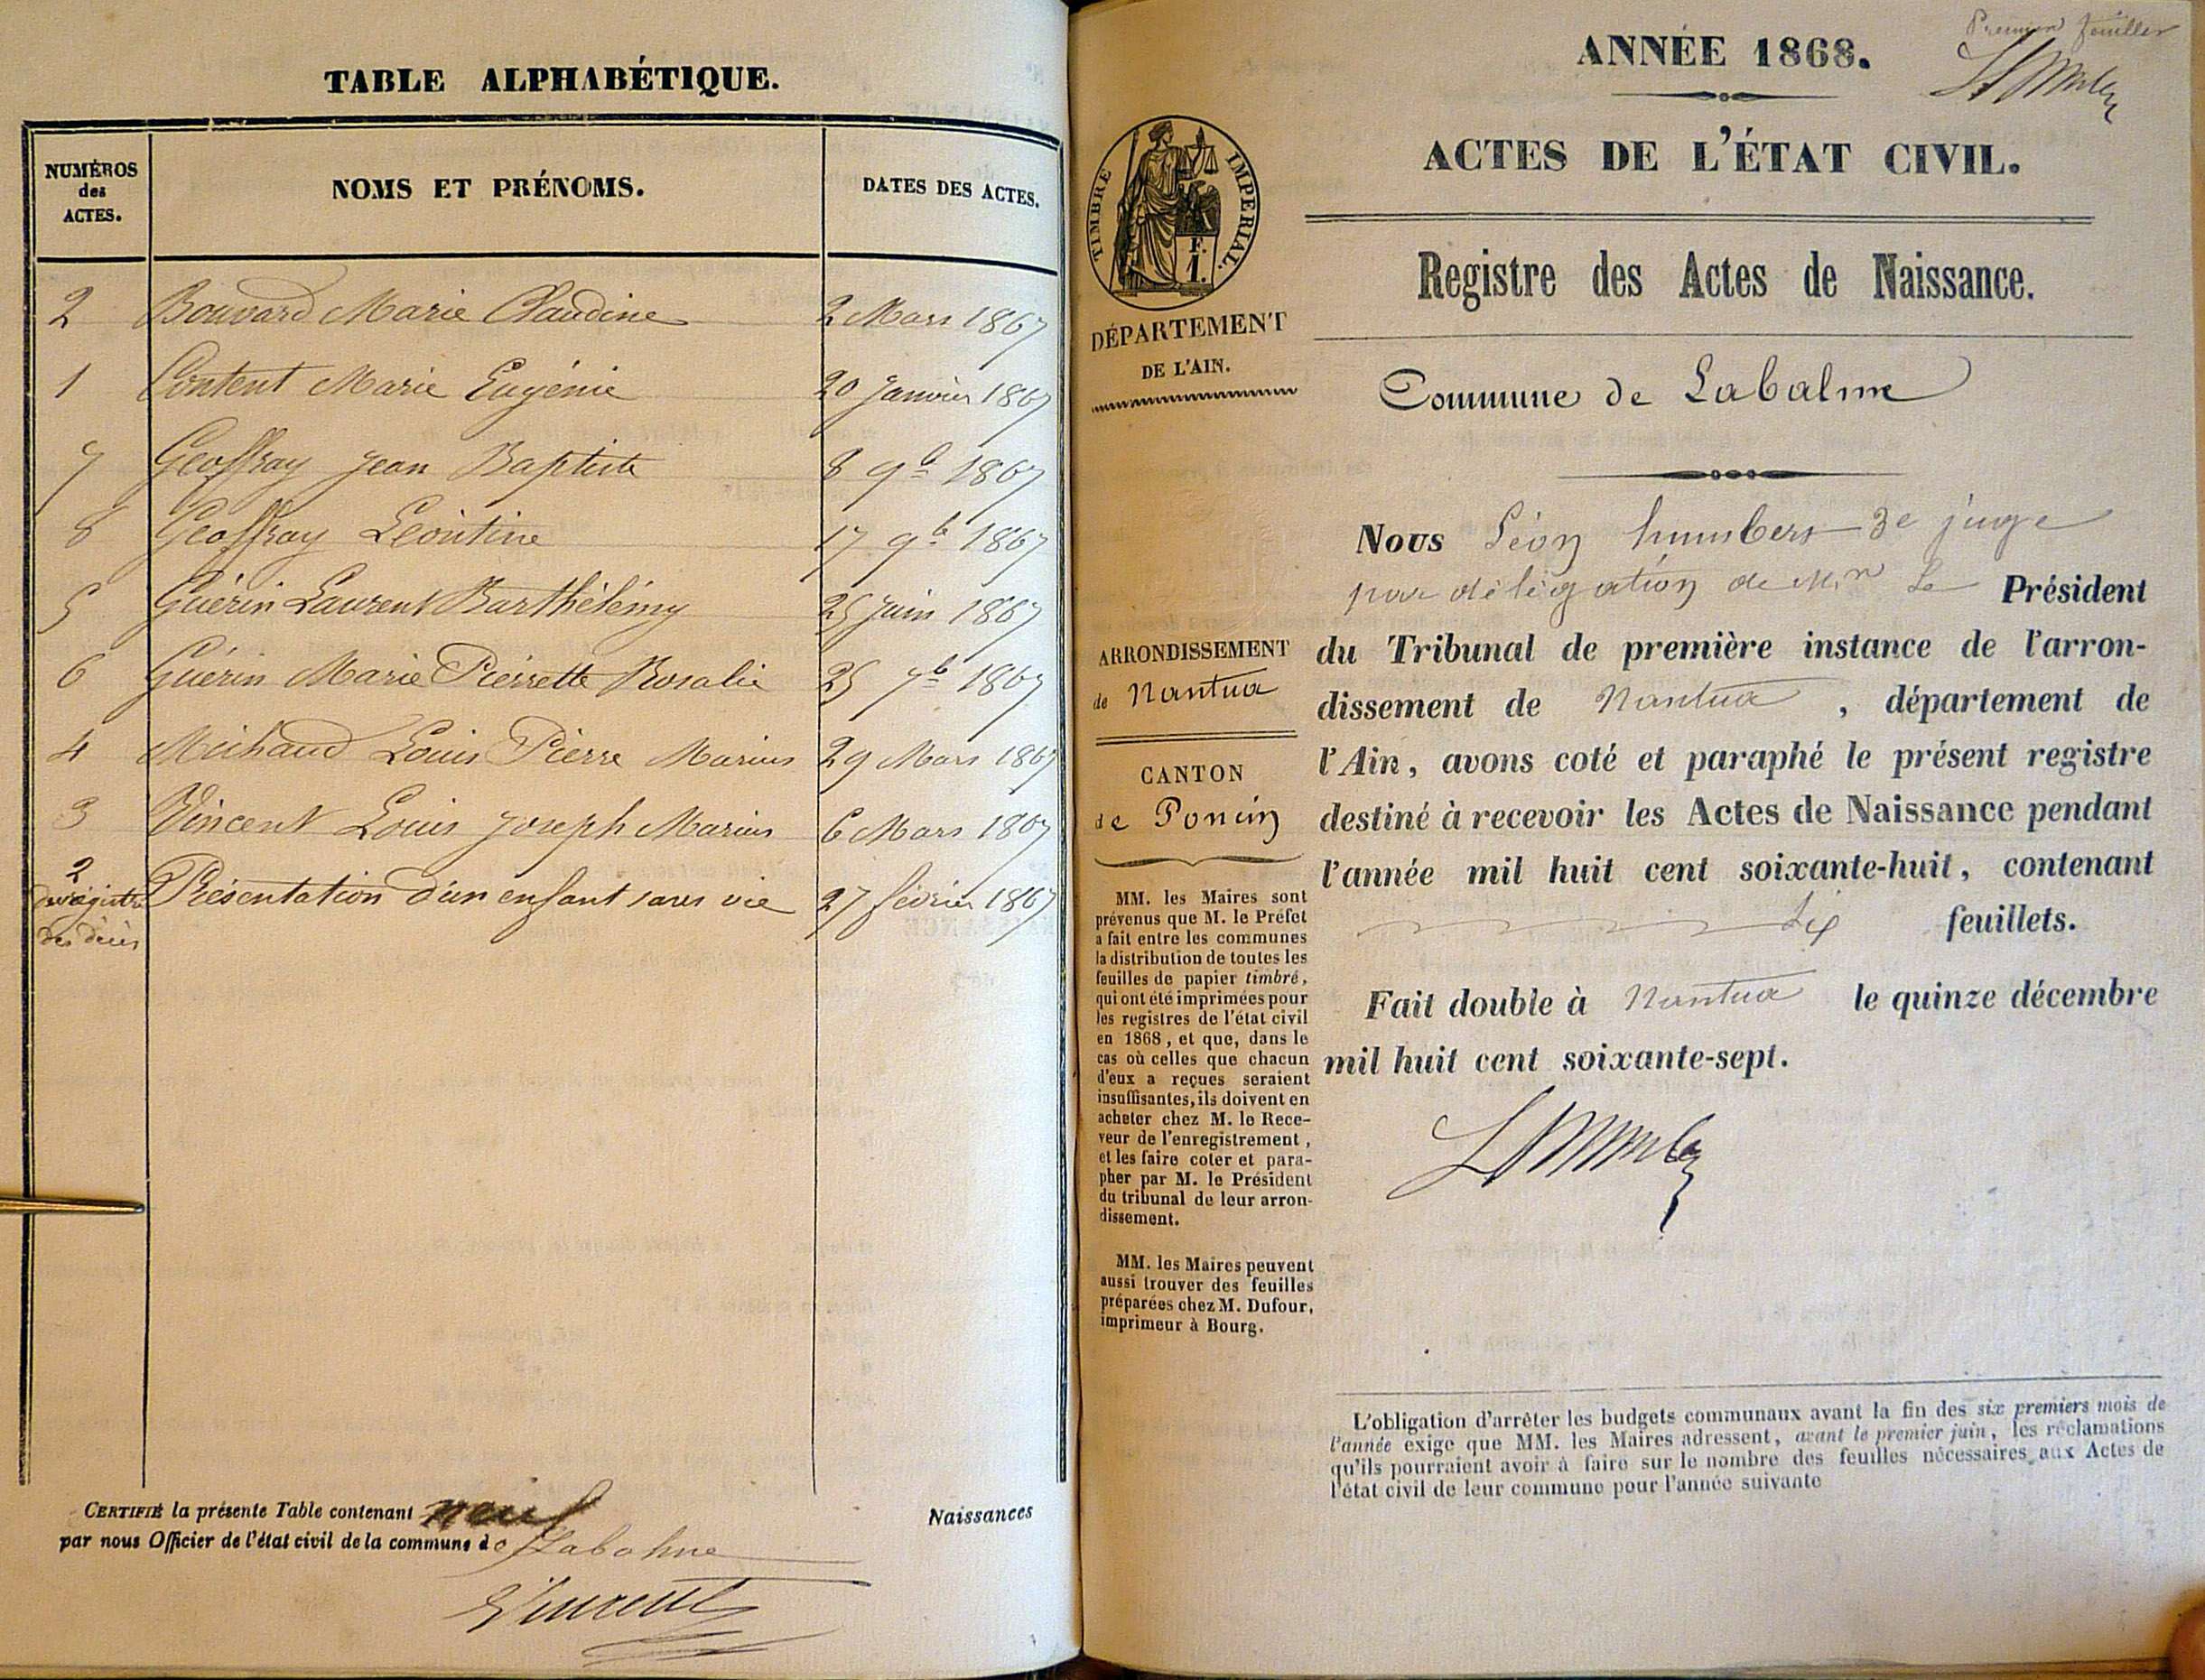 TABLE ALPHABÉTIQUE.
NUMÉROS des ACTES. NOMS ET PRÉNOMS. DATES DES ACTES.
2 Bouvard Marie Claudine 2 Mars 1867
1 Content Marie Eugénie 20 Janvier 1867
7 Geoffray Jean Baptiste 8 9b 1867
8 Geoffray Léontine 17 9b 1867
5 Guérin Laurent Barthélémy 25 Juin 1867
6 Guérin Marie Pierrette Rosalie 25 7b 1867
4 Michaud Louis Pierre Marius 29 Mars 1867
3 Vincent Louis Joseph Marius 6 Mars 1867
2 du registre des décès Présentation d'un enfant sans vie 27 février 1867
CERTIFIÉ la présente Table contenant neuf Naissances
par nous Officier de l'état civil de la commune de Labalme
Vincent
Premier feuillet
ANNÉE 1868.
ACTES DE L'ÉTAT CIVIL.
TIMBRE IMPERIAL.
F.
1.
Registre des Actes de Naissance.
DÉPARTEMENT
DE L'AIN.
Commune de Labalme
Nous Léon humbert 3e juge
par délégation de Mr Le Président
du Tribunal de première instance de l'arron-
dissement de Nantua, département de
l'Ain, avons coté et paraphé le présent registre
destiné à recevoir les Actes de Naissance pendant
l'année mil huit cent soixante-huit, contenant
six feuillets.
Fait double à Nantua le quinze décembre
mil huit cent soixante-sept.
ARRONDISSEMENT
de Nantua
CANTON
de Poncin
MM. les Maires sont
prévenus que M. le Préfet
a fait entre les communes
la distribution de toutes les
feuilles de papier timbré,
qui ont été imprimées pour
les registres de l'état civil
en 1868, et que, dans le
cas où celles que chacun
d'eux a reçues seraient
insuffisantes, ils doivent en
acheter chez M. le Rece-
veur de l'enregistrement,
et les faire coter et para-
pher par M. le Président
du tribunal de leur arron-
dissement.
MM. les Maires peuvent
aussi trouver des feuilles
préparées chez M. Dufour,
imprimeur à Bourg.
L'obligation d'arrêter les budgets communaux avant la fin des six premiers mois de
l'année exige que MM. les Maires adressent, avant le premier juin, les réclamations
qu'ils pourraient avoir à faire sur le nombre des feuilles nécessaires aux Actes de
l'état civil de leur commune pour l'année suivante